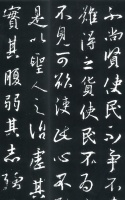 不尚賢使民不爭不
難得之貨使民不為
不見可欲使民心不
是以聖人之治虛其
實其腹弱其志強